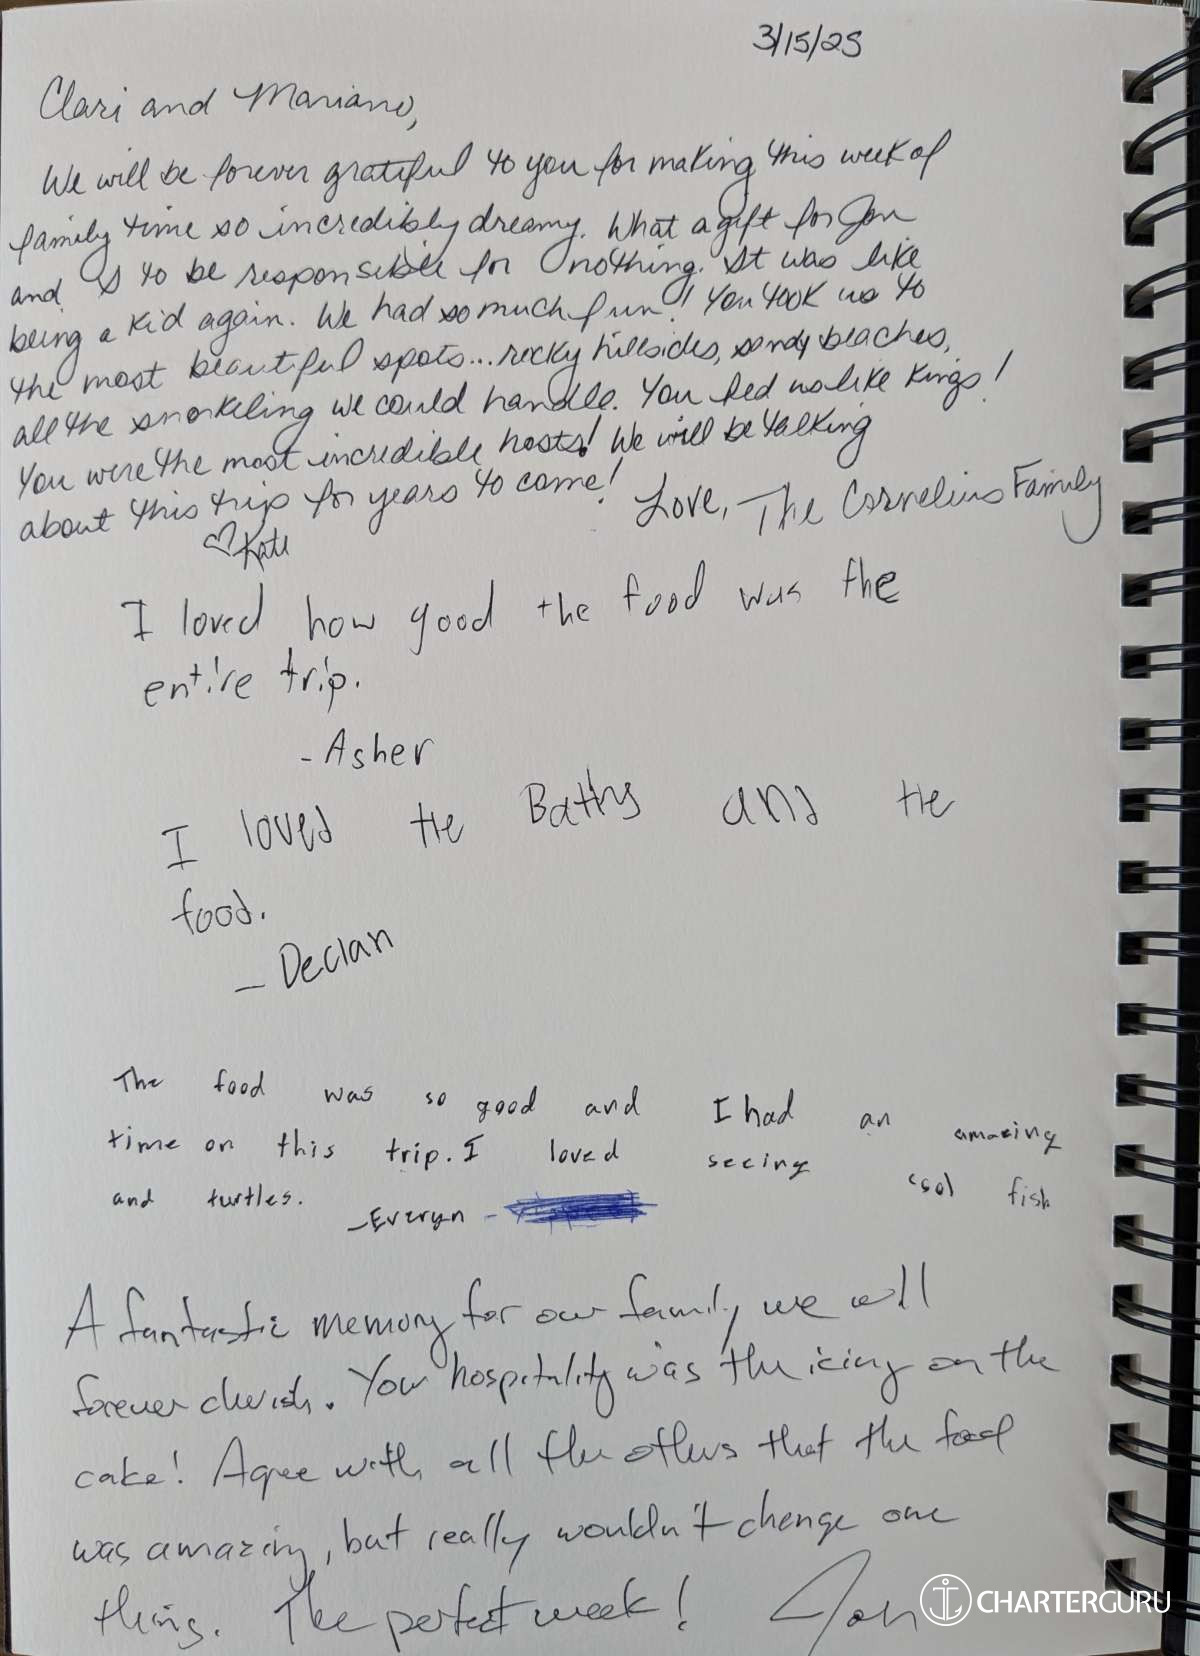 3/15/25
Clari and Mariano,
We will be forever grateful to you for making this week of
family time so incredibly dreamy. What a gift for Jon
and I to be responsible for nothing. It was like
being a kid again. We had so much fun! You took us to
the most beautiful spots... rocky hillsides, sandy beaches,
all the snorkeling we could handle. You fed us like kings!
You were the most incredible hosts! We will be talking
about this trip for years to come!
Love, The Cornelius Family
♡ Kate
I loved how good the food was the
entire trip.
- Asher
I loved the Baths and the
food.
- Declan
The food was so good and I had an amazing
time on this trip. I loved seeing cool fish
and turtles.
- Everyn -
A fantastic memory for our family we will
forever cherish. Your hospitality was the icing on the
cake! Agree with all the others that the food
was amazing, but really wouldn't change one
thing. The perfect week! Jon
CHARTERGURU